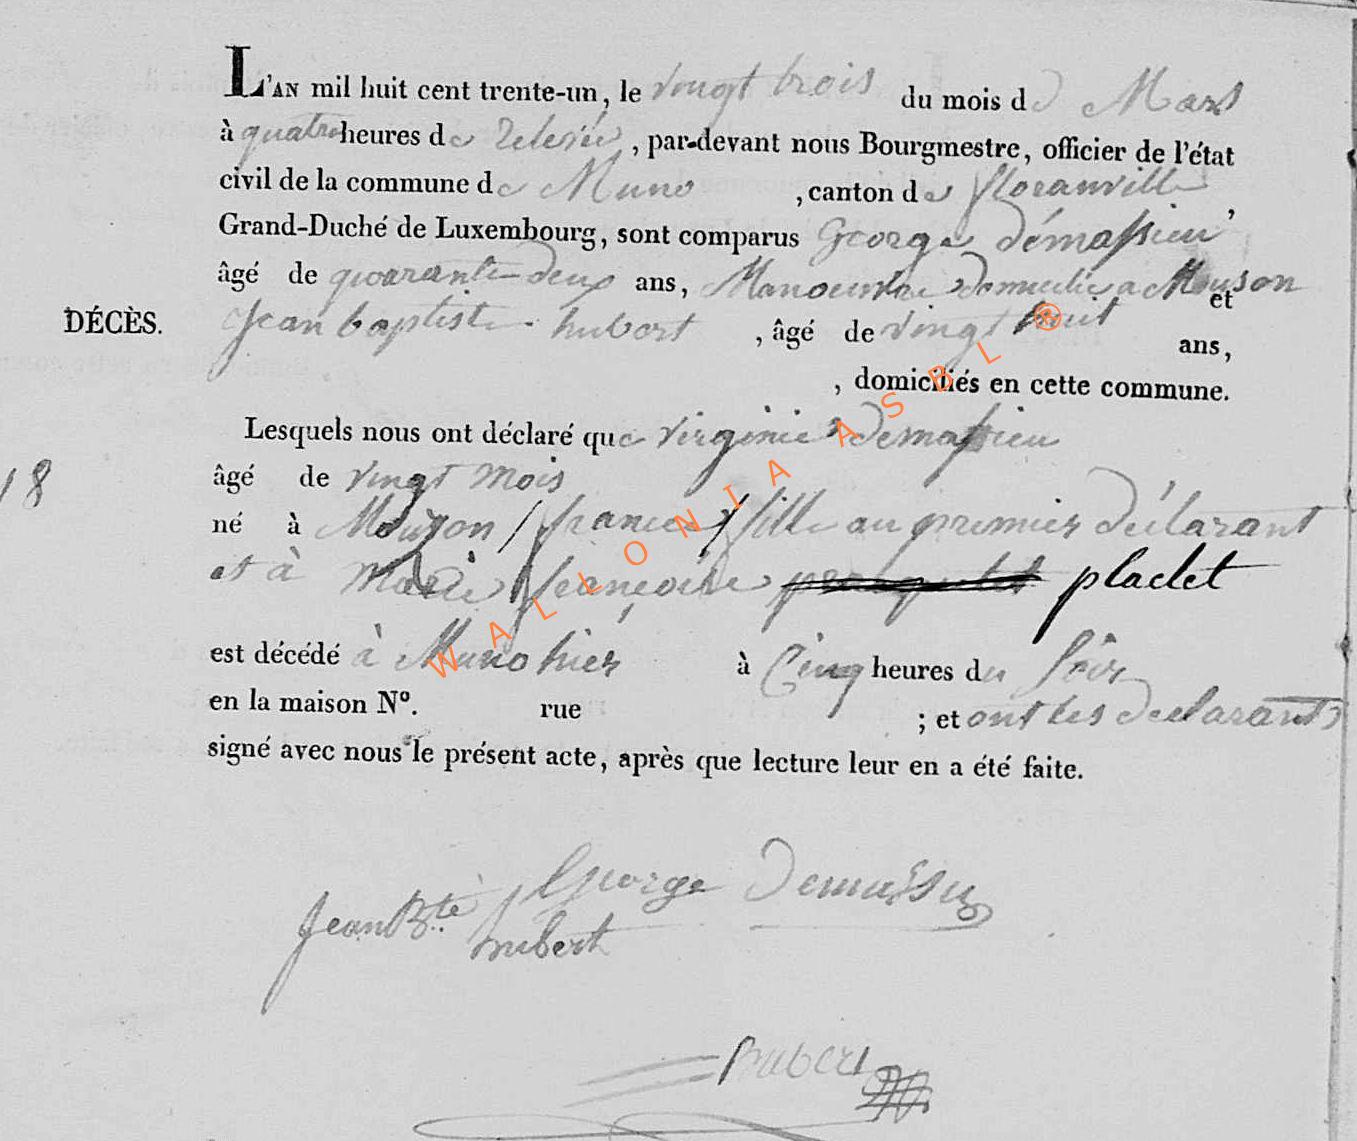 L'AN mil huit cent trente-un, le vingt trois du mois de Mars
à quatre heures de relevée, par-devant nous Bourgmestre, officier de l'état
civil de la commune de Muno, canton de floranville,
Grand-Duché de Luxembourg, sont comparus George démassieu
âgé de quarante deux ans, Manoeuvre domicilié a Mouson et
DÉCÈS.
Jean baptiste hubert, âgé de vingt huit ans,
, domiciliés en cette commune.
Lesquels nous ont déclaré que virginie demassieu
18
âgé de vingt mois
né à Mouzon / france / fille au premier déclarant
et à Marie françoise placlet
est décédé à Muno hier à Cinq heures du Soir
en la maison N°. rue ; et ont les declarants
signé avec nous le présent acte, après que lecture leur en a été faite.
George Demassieu
Jean Bte hubert
hubert
WALLONIA ASBL ®